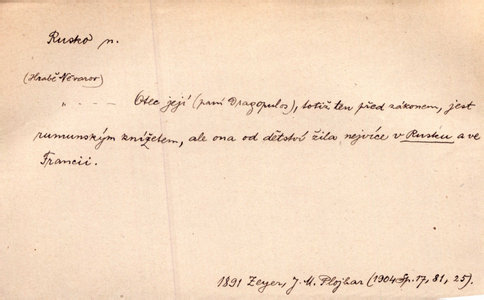 Rusko n.
(Hrabě Nevarov)
" - - - Otec její (paní Dragopulos), totiž ten před zákonem, jest
rumunským knížetem, ale ona od dětství žila nejvíce v Rusku a ve
Francii.
1891 Zeyer, J. M. Plojhar (1904 Sp. 17, 81, 25).